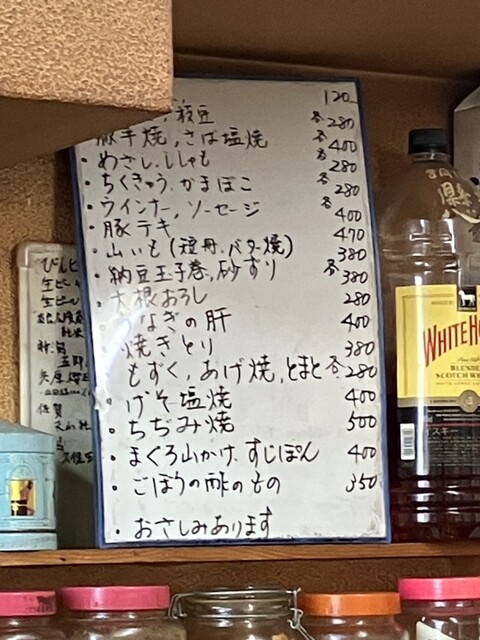 120
枝豆 各280
豚平焼, さば塩焼 各400
・めざし, ししゃも 280
・ちくきゅう, かまぼこ 各280
・ウインナー, ソーセージ 400
・豚テキ 470
・山いも(短冊, バター焼) 380
・納豆玉子巻, 砂ずり 各380
・大根おろし 280
なぎの肝 400
焼きとり 380
もずく, あげ焼, とまと 各280
・げそ塩焼 400
・ちぢみ焼 500
・まぐろ山かけ, すじぽん 400
・ごぼうの酢のもの 350
・おさしみあります
びんビ
生ビー
生ビール
佐賀
WHITE HO
BLENDE
SCOTCH W